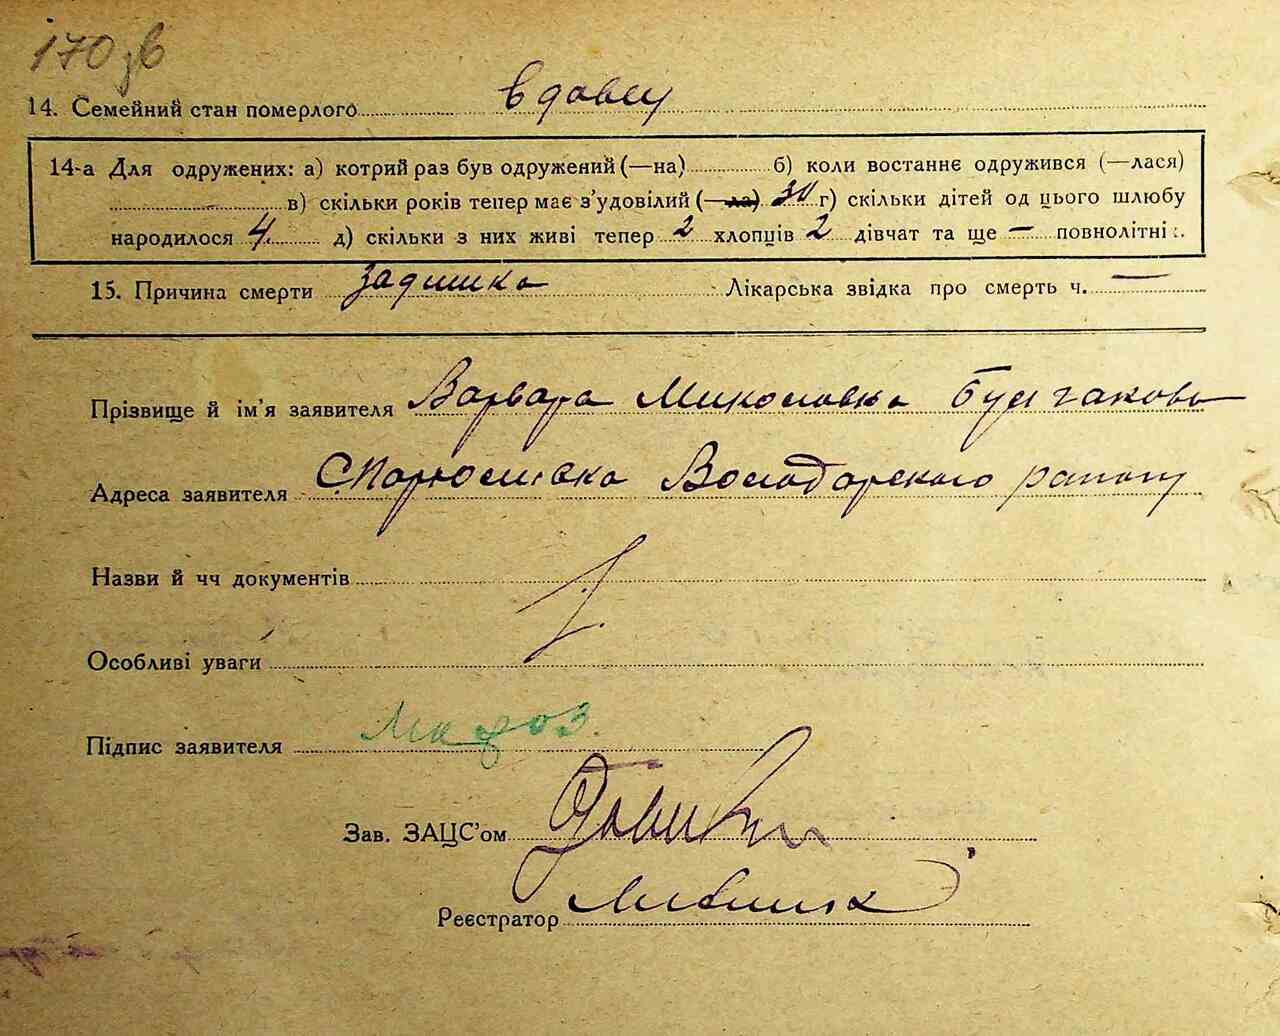 170 зв
14. Семейний стан померлого вдовец
14-а Для одружених: а) котрий раз був одружений (—на) б) коли востаннє одружився (—лася)
в) скільки років тепер має з'удовілий (—ла) 30 г) скільки дітей од цього шлюбу
народилося 4. д) скільки з них живі тепер 2 хлопців 2 дівчат та ще — повнолітніх.
15. Причина смерти задишка Лікарська звідка про смерть ч. —
Прізвище й ім'я заявителя Варвара Миколаівна Булгакова
Адреса заявителя Володарского району
Назви й чч документів
Особливі уваги
Підпис заявителя
Зав. ЗАЦС'ом
Реєстратор